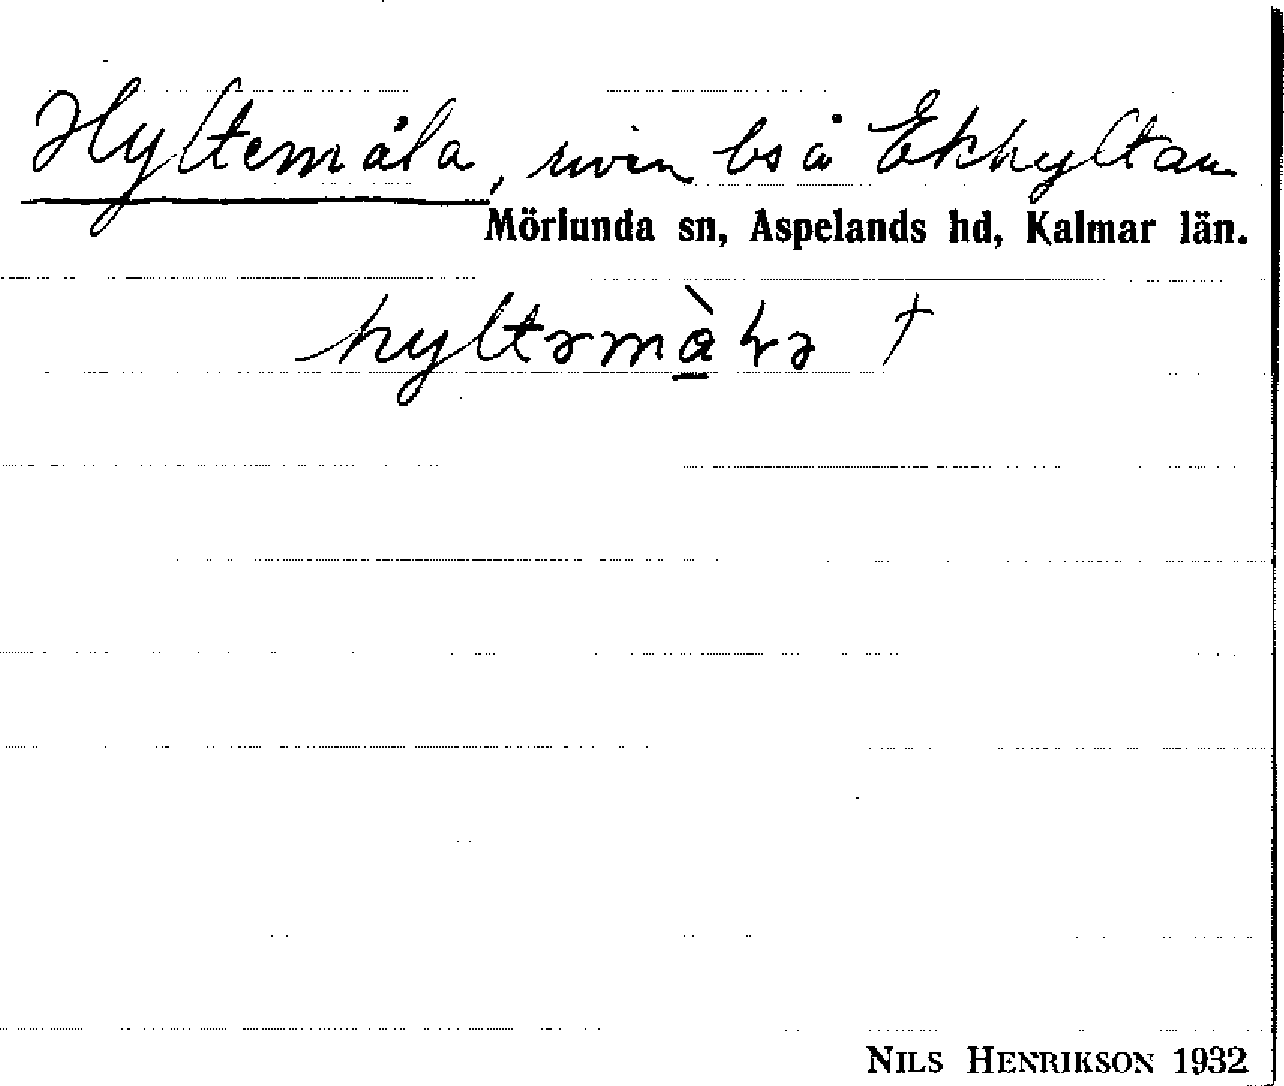 Hyltemåla, riven bs å Ekhyltan
Mörlunda sn, Aspelands hd, Kalmar län.
hyltəmà̱ɫə †
NILS HENRIKSON 1932